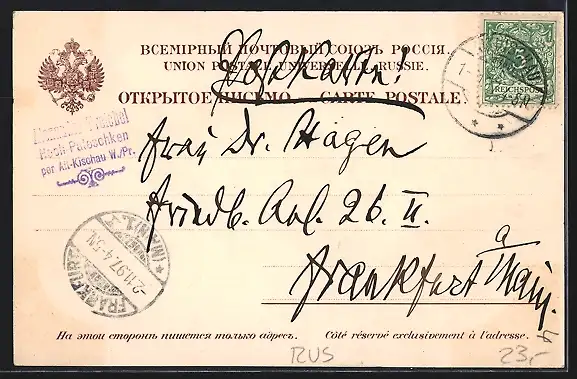 ВСЕМІРНЫЙ ПОЧТОВЫЙ СОЮЗЪ РОССІЯ.
UNION POSTALE UNIVERSELLE. RUSSIE.
Postkarte!
ОТКРЫТОЕ ПИСЬМО — CARTE POSTALE
REICHSPOST
Hoch-Paleschken
per Alt-Kischau W./Pr.
Frau Dr. Hagen
Friedb. Anl. 26. II.
Frankfurt a Main.
FRANKFURT (MAIN)
2.11.97. 4-5N.
На этой сторонѣ пишется только адресъ. Côté réservé exclusivement à l'adresse.
RUS
23,-